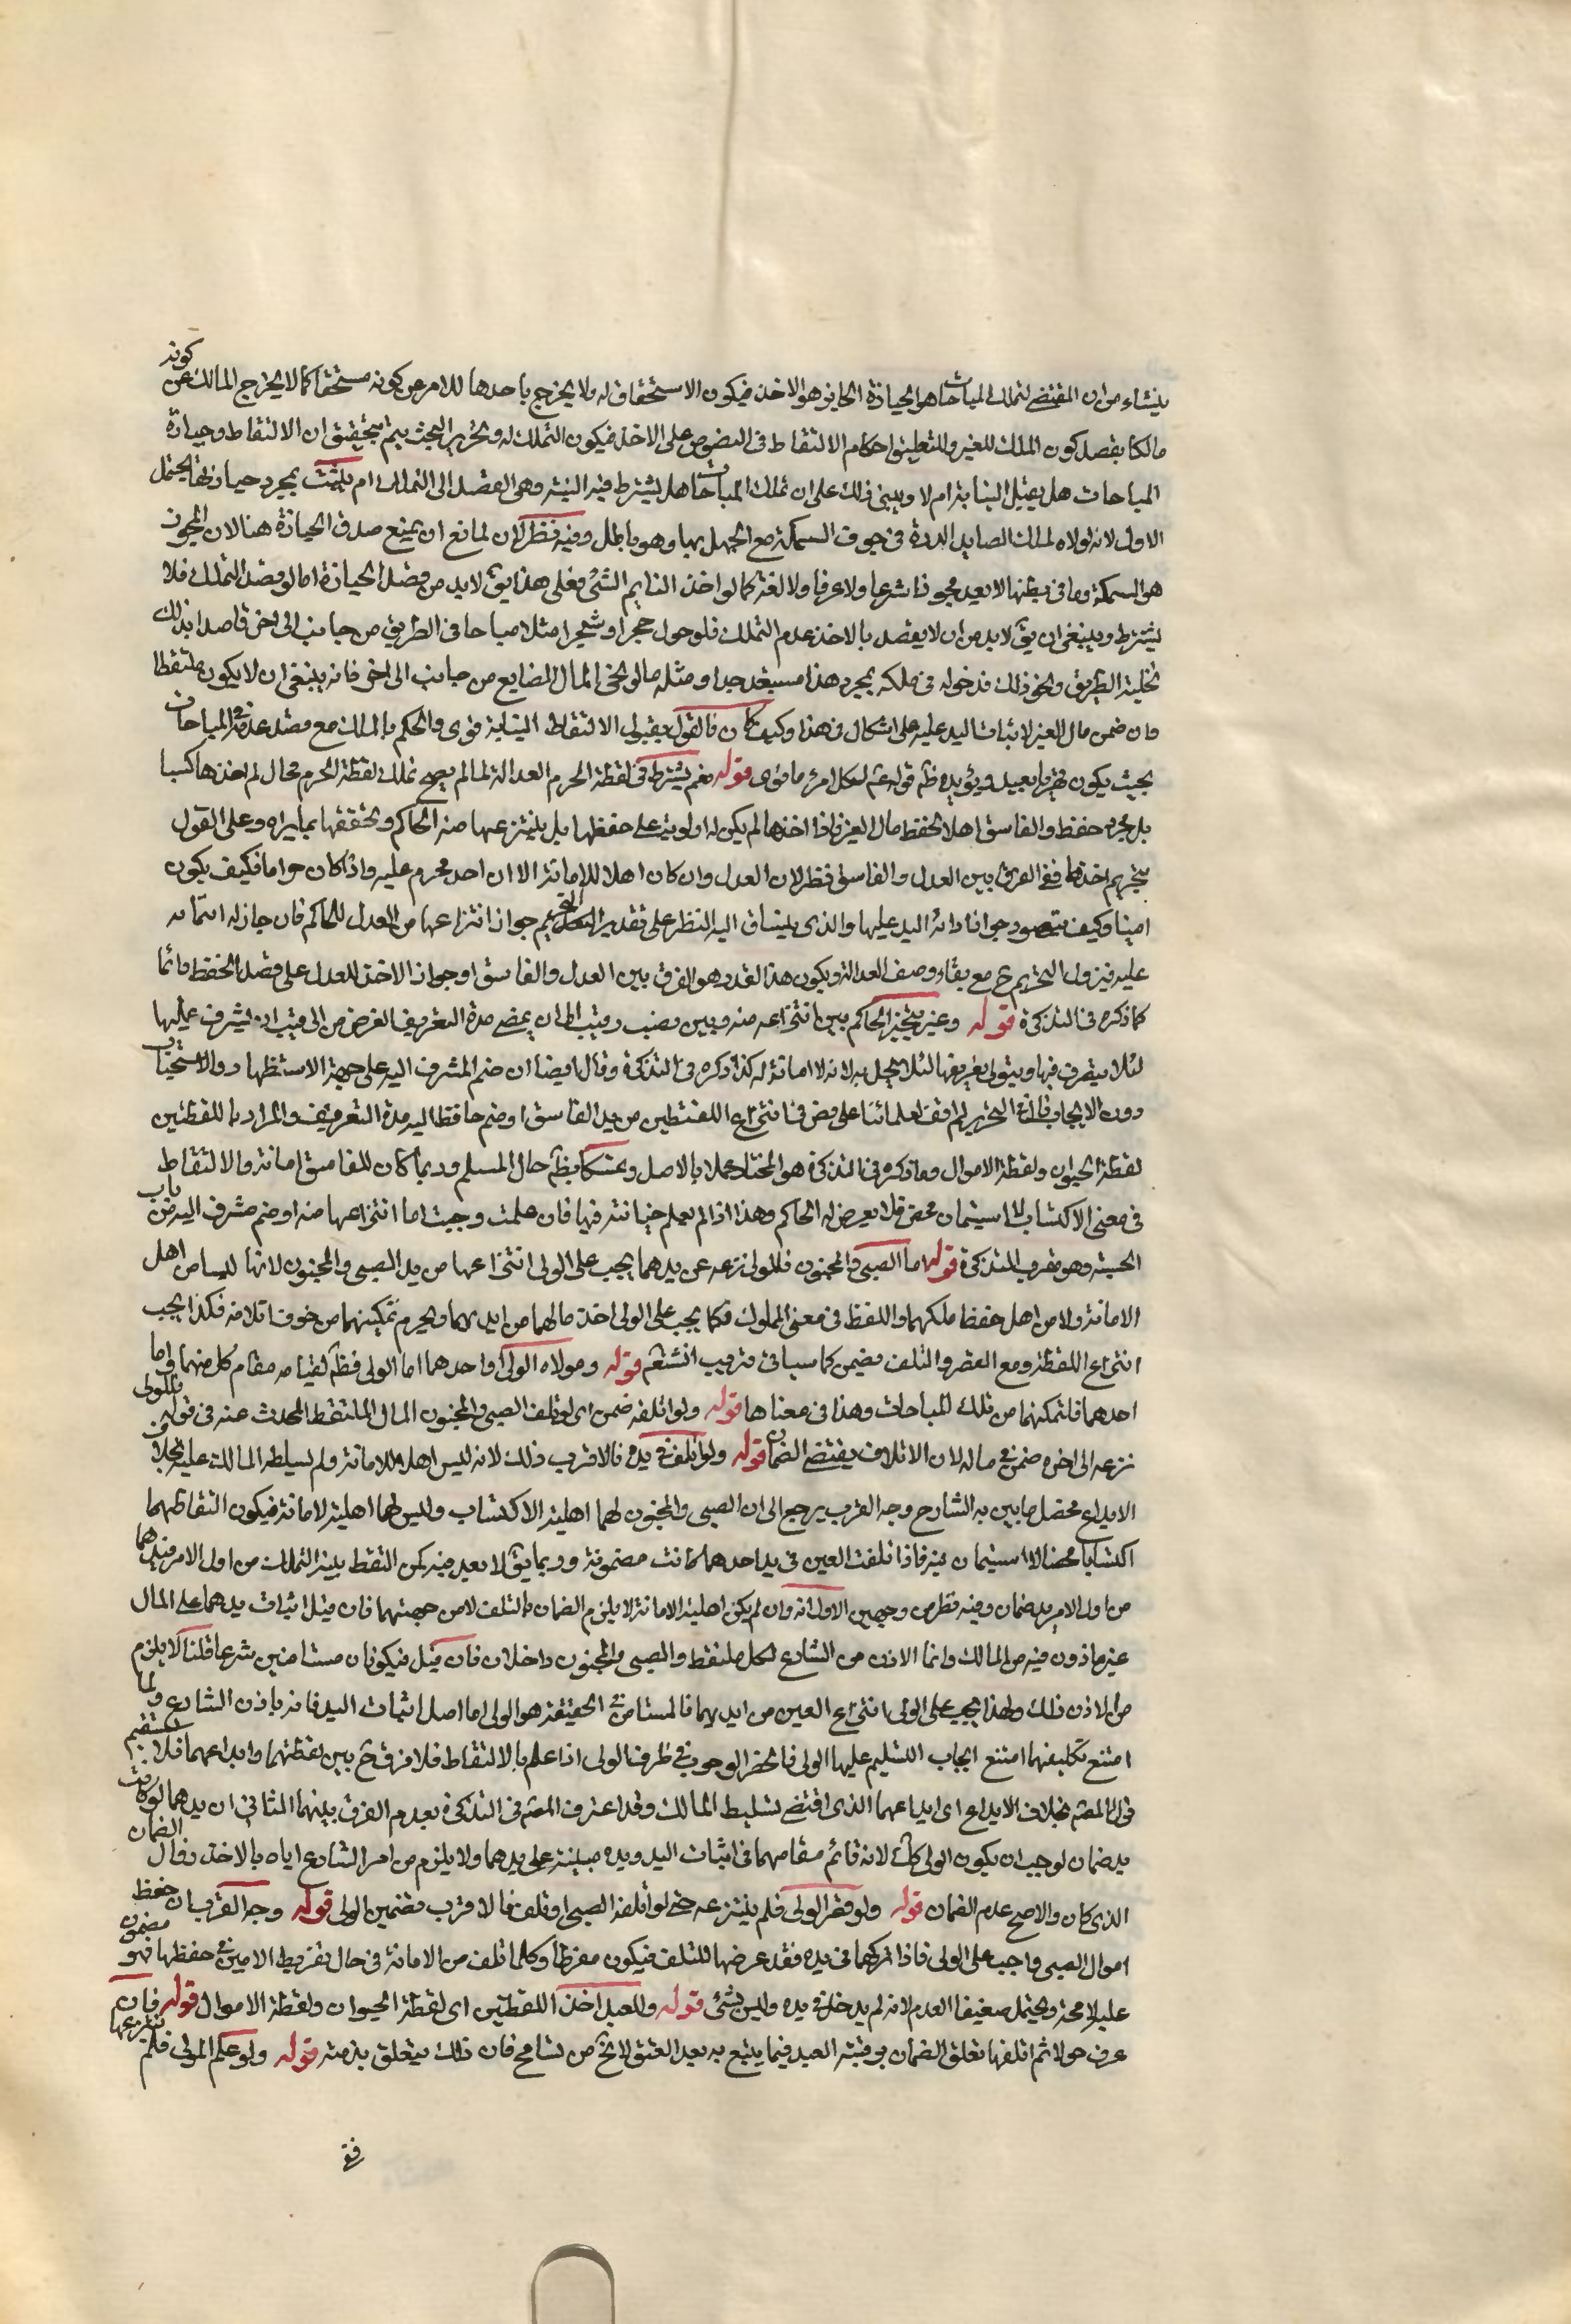 ينشاء من ان المقتضى لتملك المباحات هو الحيازة الحايز هو الاخذ فيكون الاستحقاق له ولا يخرج باحدها للامر عن كونه مستحقا كما لا يخرج المالك عن كونه
مالكا بقصد كون الملك للغير ولتعليق احكام الالتقاط في النصوص على الاخذ فيكون التملك له وتحرير البحث يتم بتحقيق ان الالتقاط وحيازة
المباحات هل يقبل النيابة ام لا ويبنى ذلك على ان تملك المباحات هل يشترط فيه النية وهى القصد الى التملك ام يثبت بمجرد حيازتها يحتمل
الاول لانه لولاه لملك الصايد الدرة في جوف السمكة مع الجهل بها وهو باطل وفيه نظر لان لمانع ان يمنع صدق الحيازة هنا لان المحوز
هو السمكة وما في بطنها لا يعد محوزا شرعا ولا عرفا ولا لغة كما لو اخذ النايم الشئ فعلى هذا يق لابد من قصد الحيازة اما لو قصد التملك فلا
يشترط وينبغى ان يق لابد من ان لا يقصد بالاخذ عدم التملك فلو حول حجرا وشجرا مثلا مباحا في الطريق من جانب الى اخر قاصدا بذلك
تخلية الطريق ونحو ذلك فدخوله في ملكه بمجرد هذا مستبعد جدا ومثله مالو نحى المال الضايع من جانب الى اخر فانه ينبغى ان لا يكون ملتقطا
وان ضمن مال الغير لاثبات اليد عليه على اشكال في هذا وكيف كان فالقول بقبول الالتقاط النيابة قوى والحكم بالملك مع قصد عدمه في المباحات
بحيث يكون قهريا بعيد ويؤيده ظه قوله عم لكل امرء ما نوى قوله نعم يشترط في لقطة الحرم العدالة لما لم يصح تملك لقطة الحرم بحال لم اخذها كسبا
بل مجرد حفظ والفاسق اهلا لحفظ مال الغير فاذا اخذها لم يكن له اولوية على حفظها بل ينتزعها منه الحاكم ويحفظها بما يراه وعلى القول
بتحريم اخذها ففى الفرق بين العدل والفاسق نظر لان العدل وان كان اهلا للامانة الا ان احد محرم عليه واذا كان حراما فكيف يكون
امينا وكيف يتصور جواز ادامة اليد عليها والذى ينساق اليه النظر على تقدير التحريم جواز انتزاعها من العدل للحاكم فان جاز له ائتمانه
عليه فيزول التحريم ح مع بقاء وصف العدالة ويكون هذا القدر هو الفرق بين العدل والفاسق او جواز الاخذ للعدل على قصد الحفظ دائما
كما ذكره في التذكرة قوله وغيره يتخير الحاكم بين انتزاعه منه وبين نصب رقيب الى ان يمضى مدة التعريف الغرض من الرقيب ان يشرف عليها
لئلا يتصرف فيها ويتولى تعريفها لئلا يخل به لانه لا امانة له كذا ذكره في التذكرة وقال ايضا ان ضم المشرف اليه على جهة الاستظهار والاستحباب
دون الايجاب وقال في التحرير لم اقف لعلمائنا على نص في انتزاع اللقطتين من يد الفاسق او ضم حافظ اليه مدة التعريف والمراد باللقطتين
لقطة الحيوان ولقطة الاموال وما ذكره في التذكرة هو المختار عملا بالاصل وتمسكا بظه حال المسلم وربما كان للفاسق امانة والالتقاط
في معنى الاكتساب لا استيمان محض فلا يعرض له الحاكم وهذا اذا لم يعلم خيانته فيها فان علمت وجبت اما انتزاعها منه او ضم مشرف اليه من باب
الحسبة وهو مقرب التذكرة قوله اما الصبى والمجنون فللولى نزعه عن يدهما يجب على الولى انتزاعها من يد الصبى والمجنون لانهما ليسا من اهل
الامانة ولا من اهل حفظ ملكهما واللقط في معنى المملوك فكما يجب على الولى اخذ مالهما من ايديهما ويحرم تمكينهما من خوف اتلافه فكذا يجب
انتزاع اللقطة ومع التقصير والتلف يضمن كما سياتى قريب انشتعم قوله ومولاه الولى او احدهما اما الولى فظه لقيامه مقام كل منهما واما
احدهما فلتمكنهما من تملك المباحات وهذا في معناها قوله ولو اتلفه ضمن اى لو تلف الصبى والمجنون المال الملتقط المحدث عنه في قوله فللولى
نزعه الى اخره ضمن في ماله لان الاتلاف يقتضى الضمان قوله ولو تلف في يده فالاقرب ذلك لانه ليس اهلا للامانة ولم يسلطه المالك عليه بخلاف
الايداع محصل ما بين به الشارح وجه القرب يرجع الى ان الصبى والمجنون لهما اهلية الاكتساب وليس لهما اهلية لامانة فيكون التقاطهما
اكتسابا محضا لا استيمان فيه فاذا تلفت العين في يد احدهما كانت مضمونة وربما يق لا بعد فيه كمن التقط بنية التملك من اول الامر فيدهما
من اول الامر يد ضمان وفيه نظر من وجهين الاول انه وان لم يكن اهلية الامانة لا يلزم الضمان بالتلف لا من جهتهما فان قيل اثبات يدهما على المال
غير ماذون فيه من المالك وانما الاذن من الشارع لكل ملتقط والصبى والمجنون داخلان فان قيل فيكونان مستامنين شرعا قلنا لا يلزم
من الاذن ذلك ولهذا يجب على الولى انتزاع العين من ايديهما فالمستامن في الحقيقة هو الولى اما اصل اثبات اليد فانه باذن الشارع ولما
امتنع تكليفهما امتنع ايجاب التسليم عليهما الى الولى فانحصر الوجوب في طرف الولى اذا علم بالالتقاط فلا فرق ح بين لقطتهما وايداعهما فلا يستقيم
قول المصه بخلاف الايداع اى ايداعهما الذى اقتضى تسليط المالك وقد اعترف المصه في التذكرة بعدم الفرق بينهما الثانى ان يدهما لو كانت
يد ضمان لوجب ان يكون الولى كك لانه قائم مقامهما في اثبات اليد ويده مبنية على يدهما ولا يلزم من امر الشارع اياه بالاخذ زوال الضمان
الذى كان والاصح عدم الضمان قوله ولو قصر الولى فلم ينتزعه حتى لو اتلفه الصبى او تلف فالاقرب تضمين الولى قوله وجه القرب ان حفظ
اموال الصبى واجب على الولى فاذا تركهما في يده فقد عرضها للتلف فيكون مفرطا وكلما تلف من الامانة في حال تفريط الامين في حفظها فهو مضمون
عليه لا محة ويحتمل ضعيفا العدم لانه لم يدخل في يده وليس بشئ قوله وللعبد اخذ اللقطتين اى لقطة الحيوان ولقطة الاموال قوله فان
عرف حولا ثم اتلفها تعلق الضمان برقبته العبد فيما يتبع به بعد العتق لا يخ من تسامح فان ذلك يتعلق بذمته قوله ولو علم المولى فلم ينتزعها